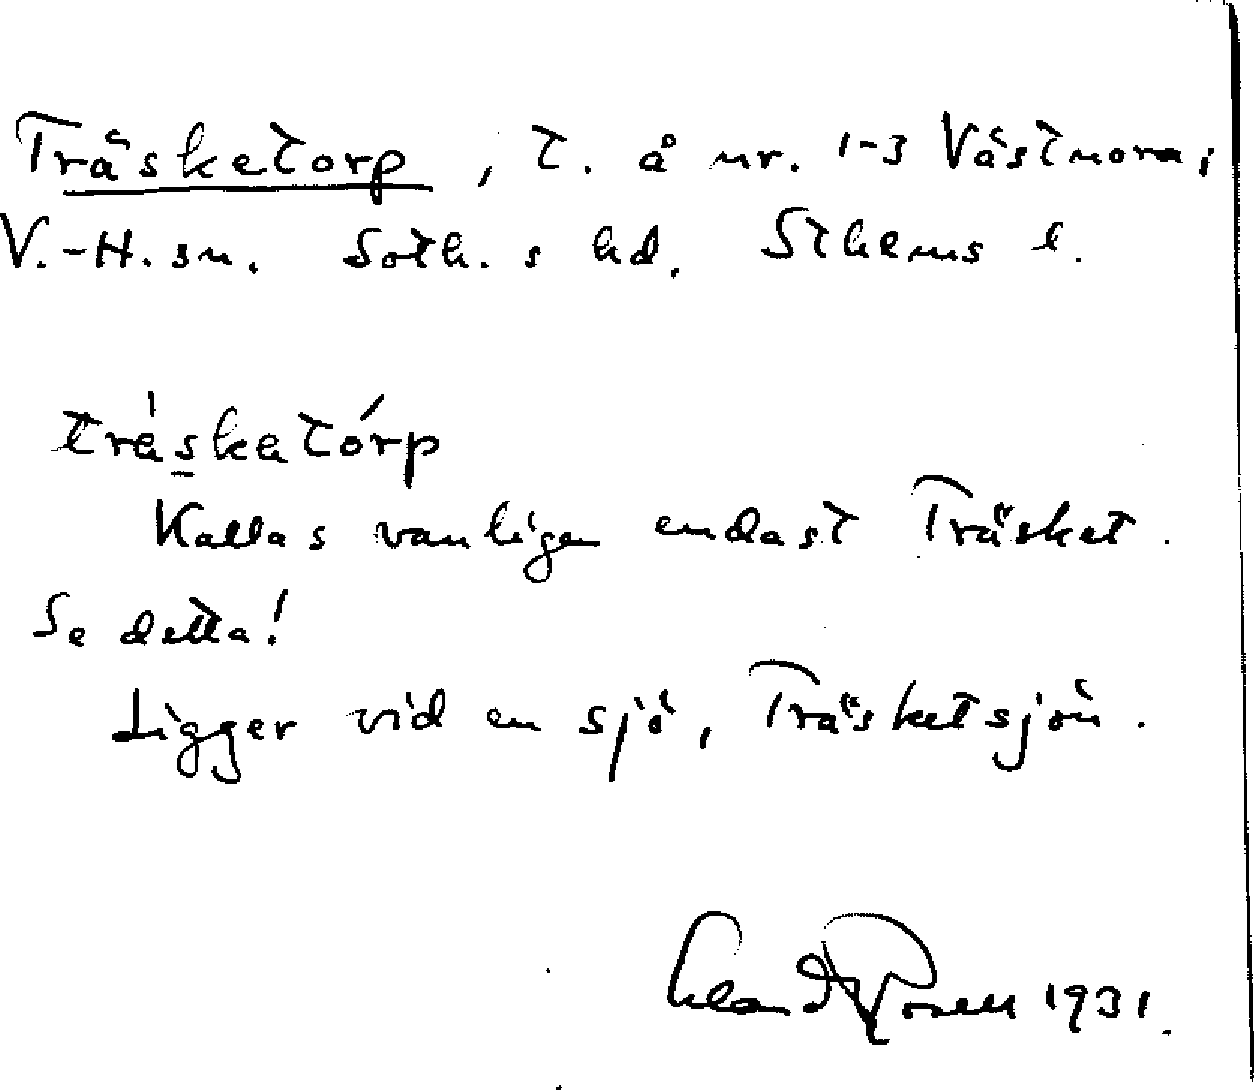 Träsketorp, t. å nr. 1-3 Västnora,
V.-H. sn. Soth.s hd. Sthlms l.
tráskatórp
Kallas vanligen endast Träsket.
Se detta!
Ligger vid en sjö, Träsketsjön.
1931.